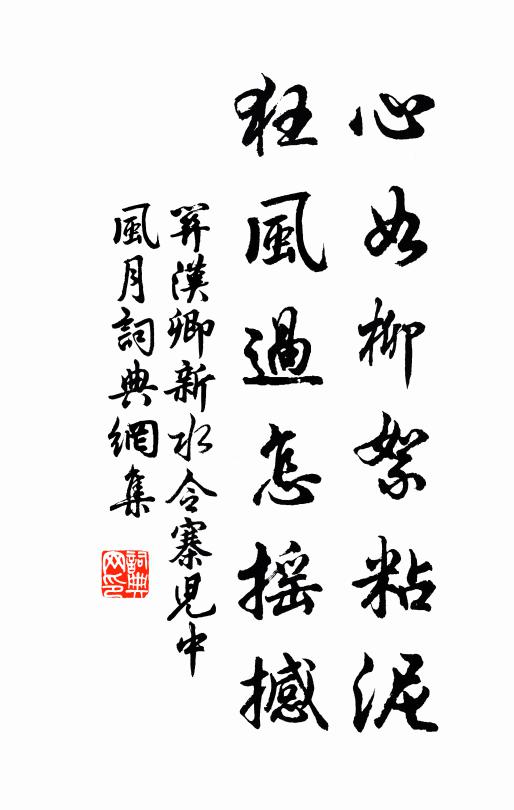 心如柳絮粘泥
狂風過怎搖撼
關漢卿新水令寨兒中
風月詞典網集
詞典網印